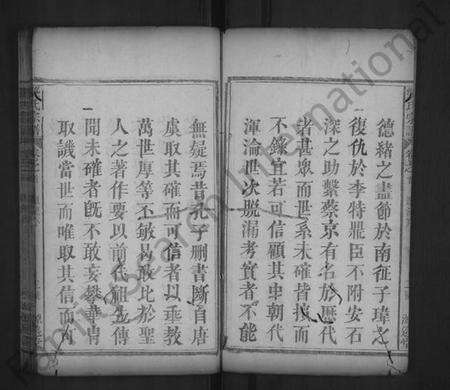 德緒之盡節於南征子瑋之
復仇於李特鼎臣不附安石
深之助繫蔡京有名於歷代
者甚衆而世系未確皆損而
不錄宜若可信顧其中朝代
渾淪世次脫漏考實者不能
無疑焉昔孔子刪書斷自唐
虞取其確而可信者以垂教
萬世厚等不敏曷敢比於聖
人之著作要以前代祖先傳
聞未確者旣不敢妄攀華胄
取譏當世而唯取其信而
International